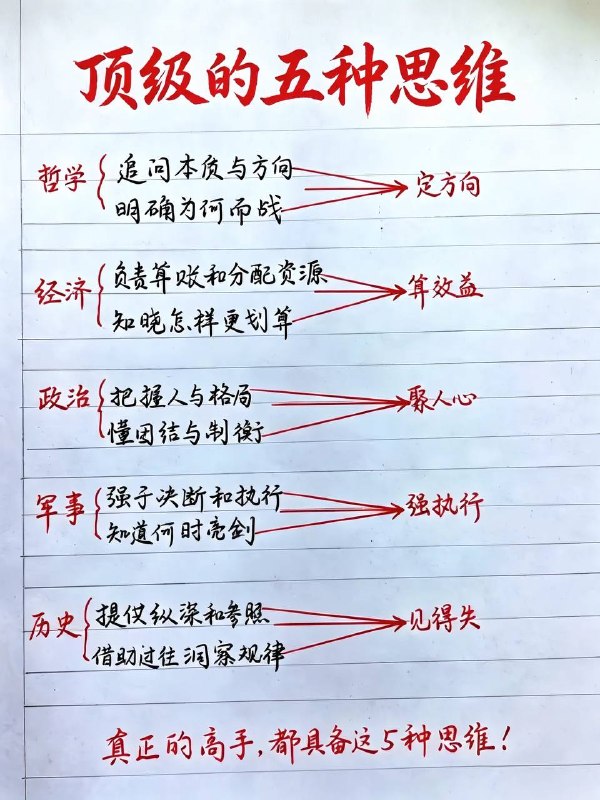 顶级的五种思维
哲学
追问本质与方向
明确为何而战
定方向
经济
负责算账和分配资源
知晓怎样更划算
算效益
政治
把握人与格局
懂团结与制衡
聚人心
军事
强于决断和执行
知道何时亮剑
强执行
历史
提供纵深和参照
借助过往洞察规律
见得失
真正的高手,都具备这5种思维!